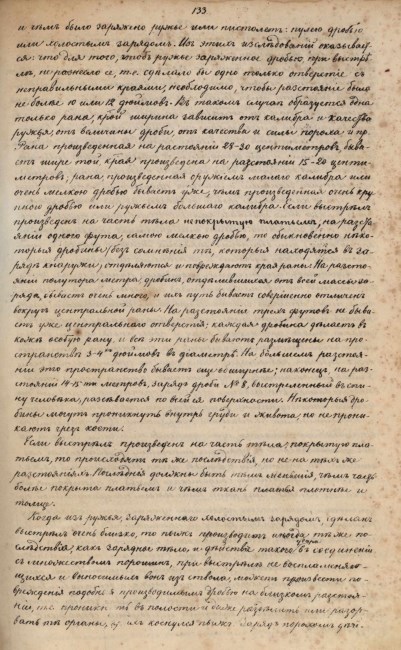 133
и чѣмъ было заряжено ружье или пистолетъ: пулею дробью
или холостымъ зарядомъ. Изъ этихъ изслѣдованій оказывает
ся: что для того, чтобъ ружье заряженное дробью, при выстрѣ
лѣ, не разнесло ее, т.е. сдѣлало бы одно только отверстіе съ
неправильными краями, необходимо, чтобы разстояніе было
не болѣе 10 или 12 дюймовъ. Въ такомъ случаѣ образуется одна
только рана, коей ширина зависитъ отъ калибра и качества
ружья, отъ величины дроби, отъ качества и силы пороха и пр.
Рана произведенная на растояніи 25-20 центиметровъ быва-
етъ шире той, которая произведена на разстояніи 15-20 центи-
метровъ; рана, произведенная оружіемъ малаго калибра или
очень мелкою дробью бываетъ уже, чѣмъ произведенная очень кру
пной дробью или ружьемъ большаго калибра. Если выстрѣлъ
произведенъ на часть тѣла непокрытую платьемъ, на разсто
яніи одного фута, самою мелкою дробью, то обыкновенно нѣко-
торыя дробины (безъ сомнѣнія тѣ, которыя находятся въ за-
рядѣ кнаружи), отдѣляются и повреждаютъ края раны. На разсто-
яніи полутора метра: дробинъ, отдѣлившихся отъ всей массы за-
ряда, бываетъ очень много, и ихъ путь бываетъ совершенно отличенъ
вокругъ центральной раны. На разстояніи трехъ футовъ не быва-
етъ уже центральнаго отверстія; каждая дробина дѣлаетъ въ
кожѣ особую рану, и всѣ эти раны бываютъ размѣщены на про-
странствѣ 3-4 дюймовъ въ діаметрѣ. На большемъ разстоя-
ніи это пространство бываетъ еще обширнѣе; наконецъ, на раз-
стояніи 14-15 метровъ, зарядъ дроби № 8, выстрѣленный въ спи-
ну человѣка, разсѣвается по всей ея поверхности. Нѣкоторыя дро-
бины могутъ проникнуть внутрь груди и живота, но не прони-
каютъ чрезъ кости.
Если выстрѣлъ произведенъ на часть тѣла, покрытую пла-
тьемъ, то происходятъ тѣ же послѣдствія, но не на тѣхъ же
разстояніяхъ. Послѣднія должны быть тѣмъ меньшія, чѣмъ часть
болѣе покрыта платьемъ и чѣмъ ткань платья плотнѣе и
толще.
Когда изъ ружья, заряженнаго холостымъ зарядомъ, сдѣланъ
выстрѣлъ очень близко, то пыжъ производитъ иногда тѣже по-
слѣдствія, какъ зарядное тѣло, и дѣйствія такого въ соединеніи
съ множествомъ порошинъ, при выстрѣлѣ не воспламеняю-
щихся и выносимыхъ вонъ изъ ствола, можетъ произвести по-
врежденія подобныя производимымъ дробью на близкомъ разстоя-
ніи, проникнуть въ полости и даже раздѣлить или разор-
вать тѣ органы, коихъ коснулся пыжъ. Зарядъ порохомъ